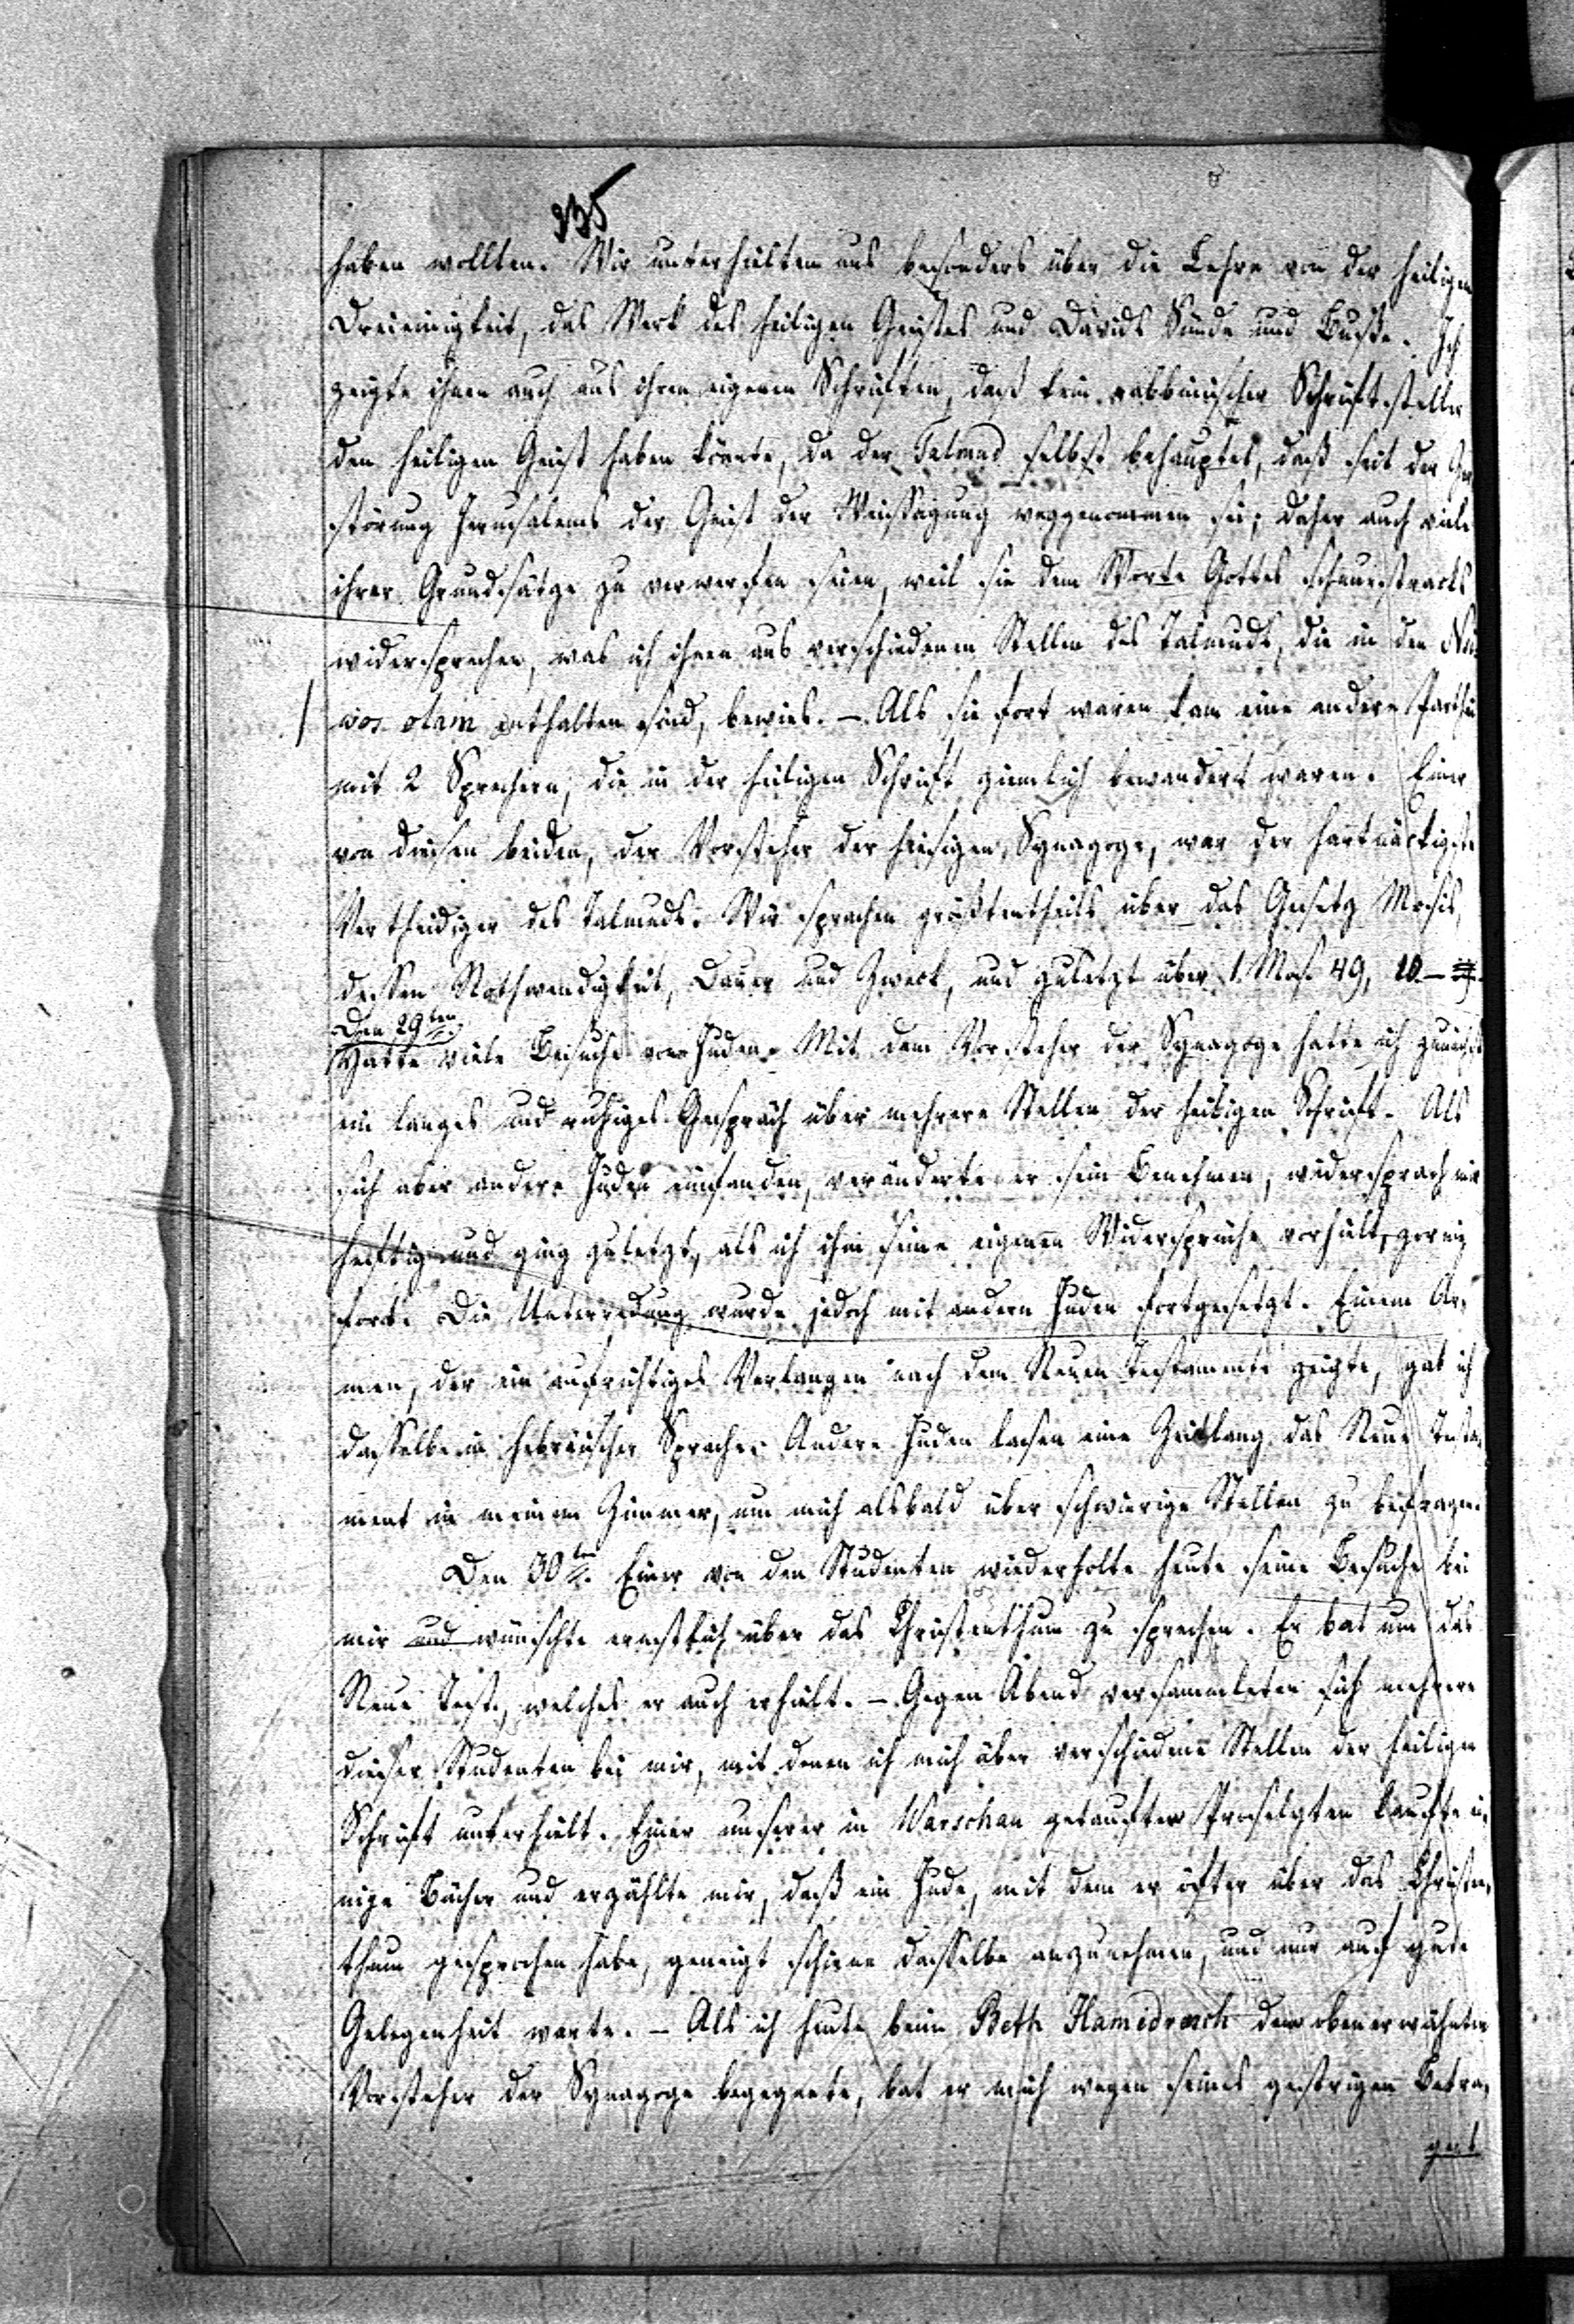 335
haben wollten. Wir unterhielten uns besonders über die Lehre von der heiligen
Dreieinigkeit, das Werk des heiligen Geistes und Davids Sünde und Buße. Ich
zeigte ihnen auch aus ihren eigenen Schriften, daß kein rabbinischer Schriftsteller
den heiligen Geist haben könnte, da der Talmud selbst behauptet, daß seit der Zer
störung Jerusalems der Geist der Weissagung weggenommen sei; daher auch viele
ihrer Grundsätze zu verwerfen seien, weil sie dem Worte Gottes schnurstracks
widersprechen, was ich ihnen aus verschiedenen Stellen des Talmuds, die in den
wos olam enthalten sind, bewies. — Als sie fort waren kam eine andere Parthei
mit 2 Sprechern, die in der heiligen Schrift ziemlich bewandert waren. Einer
von diesen beiden, der Vorsteher der hiesigen Synagoge, war der hartnäckigste
Vertheidiger des Talmuds. Wir sprachen größtentheils über das Gesetz Mosis,
dessen Nothwendigkeit, Dauer und Zweck, und zuletzt über 1. Mos. 49, 10 —
Den 29ten
Hatte viele Besuche von Juden. Mit dem Vorsteher der Synagoge hatte ich zunächst
ein langes und ruhiges Gespräch über mehrere Stellen der heiligen Schrift. Als
sich aber andere Juden einfanden, veränderte er sein Benehmen, widersprach mir
heftig und ging zuletzt, als ich ihm seine eigenen Widersprüche vorhielt, zornig
fort. Die Unterredung wurde jedoch mit andern Juden fortgesetzt. Einem Ar,
men, der ein aufrichtiges Verlangen nach dem Neuen Testamente zeigte, gab ich
dasselbe in hebräischer Sprache. Andere Juden lasen eine Zeitlang das Neue Testa,
ment in meinem Zimmer, um mich alsbald über schwierige Stellen zu befragen.
Den 30ten. Einer von den Studenten wiederholte heute seine Besuche bei
mir und wünschte ernstlich über das Christenthum zu sprechen. Er bat um das
Neue Test., welches er auch erhielt. — Gegen Abend versammleten sich mehrere
dieser Studenten bei mir, mit denen ich mich über verschiedene Stellen der heiligen
Schrift unterhielt. Einer unserer in Warschau getauften Proselyten kaufte ei,
nige Bücher und erzählte mir, daß ein Jude, mit dem er öfter über das Christen,
thum gesprochen habe, geneigt schiene dasselbe anzunehmen, und nur auf gute
Gelegenheit warte. — Als ich heute beim Beth Hamidrasch dem obenerwähnten
Vorsteher der Synagoge begegnete, bat er mich wegen seines gestrigen Betra,
gens